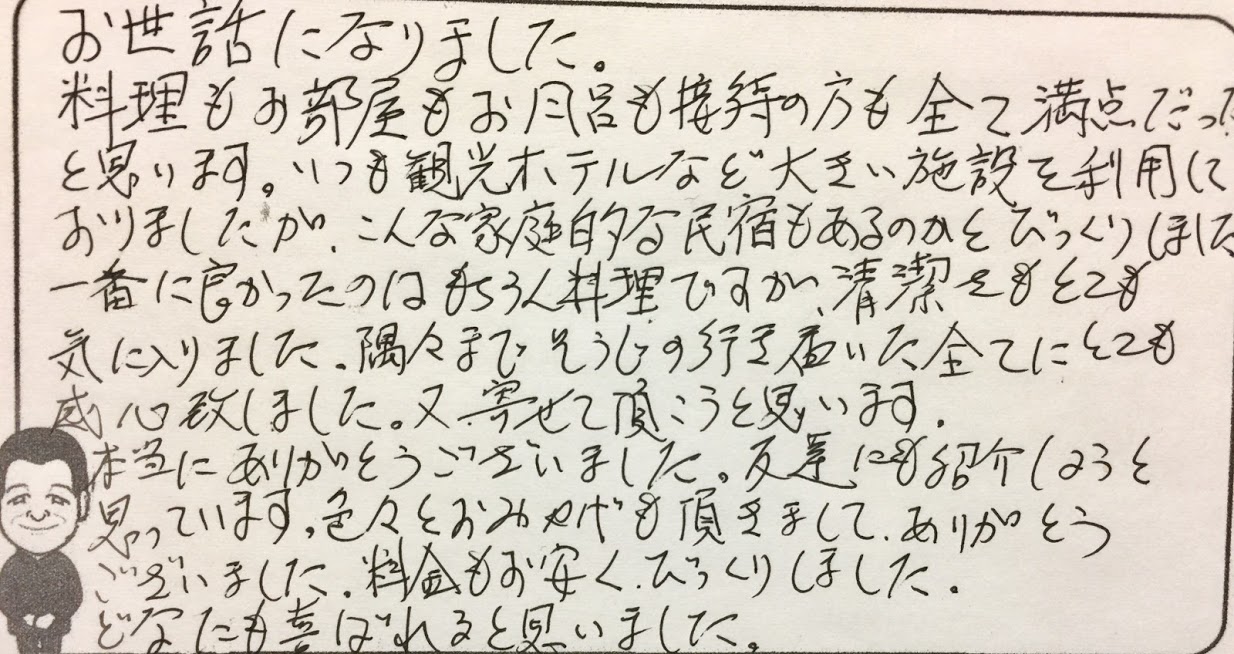 お世話になりました。
料理もお部屋もお風呂も接待の方も全て満点だった
と思います。いつも観光ホテルなど大きい施設を利用して
おりましたが、こんな家庭的な民宿もあるのかとびっくりしました
一番に良かったのはもちろん料理ですが、清潔さもとても
気に入りました。隅々までそうじの行き届いた全てにとても
感心致しました。又寄せて頂こうと思います。
本当にありがとうございました。友達にも紹介しようと
思っています。色々とおみやげも頂きまして、ありがとう
ございました。料金もお安く、びっくりしました。
どなたも喜ばれると思いました。